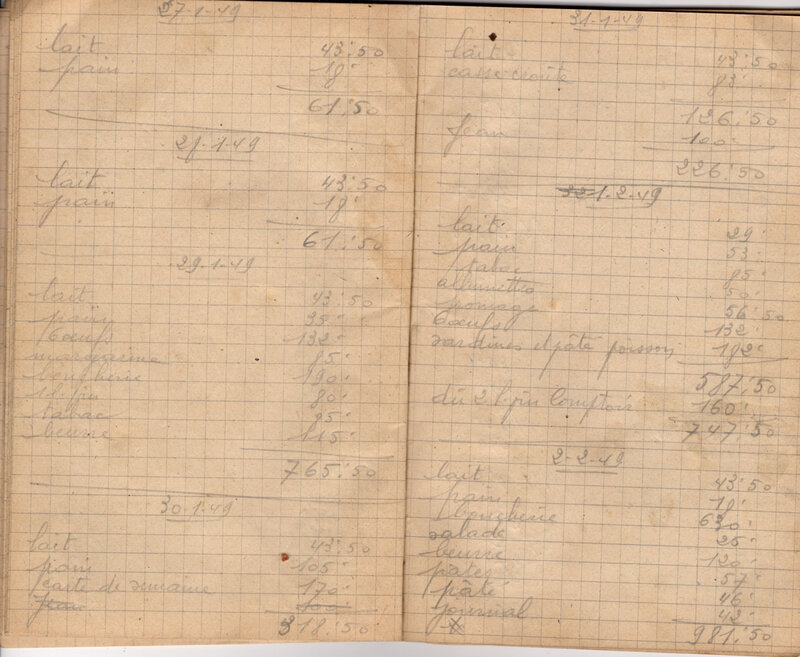 27-1-49
lait 43.50
pain 18.
61.50
28-1-49
lait 43.50
pain 18.
61.50
29-1-49
lait 43.50
pain 35.
boeufs 132.
margarine 85.
boucherie 190.
80.
tabac 85.
beurre 115.
765.50
30-1-49
lait 43.50
pain 105.
carte de semaine 170.
Jean 100.
318.50
31-1-49
lait 43.50
casse croûte 83.
126.50
Jean 100.
226.50
1-2-49
lait 29.
pain 53.
tabac 85.
allumettes 50.
fromage 56.50
boeufs 132.
sardines et pâté poisson 182.
587.50
dû 2 l. pin Comptoir 160.
747.50
2-2-49
lait 43.50
pain 18.
boucherie 630.
salade 25.
beurre 120.
pâtes 57.
pâté 46.
journal 42.
981.50